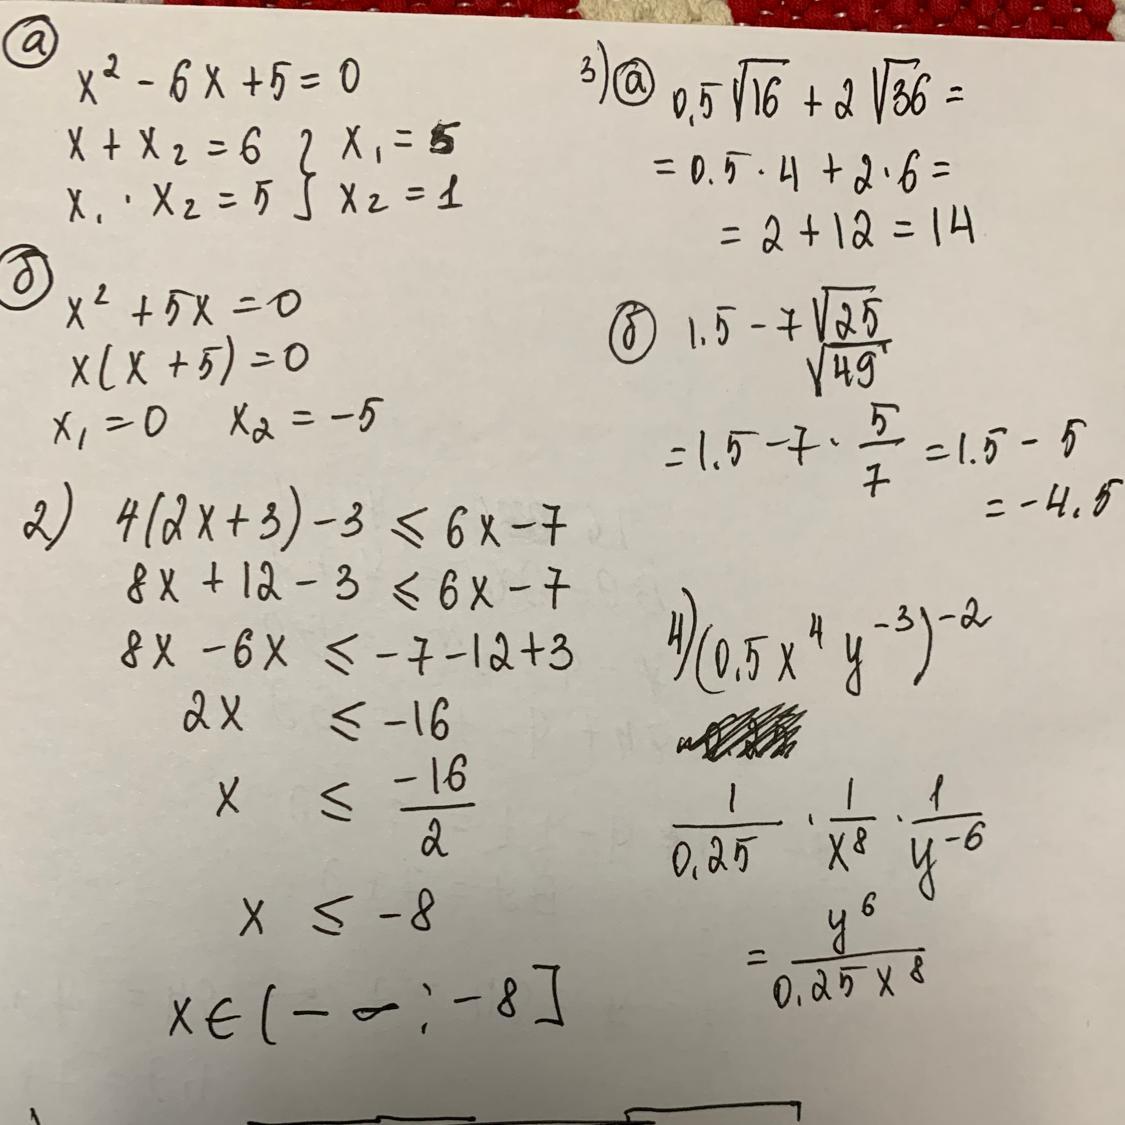 а
x² - 6x + 5 = 0
x + x₂ = 6 } x₁ = 5
x₁ · x₂ = 5 } x₂ = 1
б
x² + 5x = 0
x(x + 5) = 0
x₁ = 0 x₂ = -5
2) 4(2x+3) - 3 ≤ 6x - 7
8x + 12 - 3 ≤ 6x - 7
8x - 6x ≤ -7 - 12 + 3
2x ≤ -16
x ≤ -16/2
x ≤ -8
x ∈ (-∞; -8]
3) а 0,5√16 + 2√36 =
= 0.5 · 4 + 2 · 6 =
= 2 + 12 = 14
б 1.5 - 7 √25/√49
= 1.5 - 7 · 5/7 = 1.5 - 5
= -4.5
4) (0,5x⁴ y⁻³)⁻²
1/0,25 · 1/x⁸ · 1/y⁻⁶
= y⁶/0,25x⁸